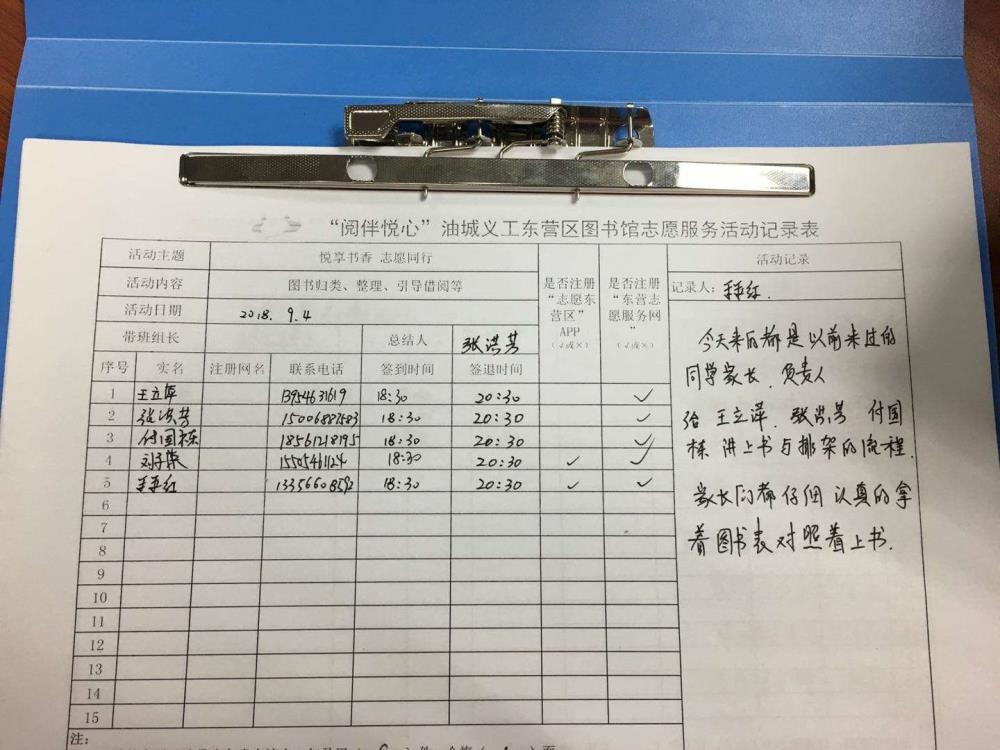 “阅伴悦心”油城义工东营区图书馆志愿服务活动记录表
活动主题 悦享书香 志愿同行 是否注册“志愿东营区”APP（√或×） 是否注册“东营志愿服务网”（√或×） 活动记录
活动内容 图书归类、整理、引导借阅等 记录人：
活动日期 2018. 9.4
带班组长 总结人 张洪芳
序号 实名 注册网名 联系电话 签到时间 签退时间
1 王立萍 13954631619 18:30 20:30 ✓
2 张洪芳 15006887583 18:30 20:30 ✓
3 付国栋 18561218195 18:30 20:30 ✓
4 15505461124 18:30 20:30 ✓ ✓
5 13356608592 18:30 20:30 ✓ ✓
6
7
8
9
10
11
12
13
14
15
今天来的都是以前来过的
同学家长. 负责人
给 王立萍. 张洪芳 付国
栋 讲上书与排架的流程.
家长们都仔细认真的拿
着图书表对照着上书.
注：